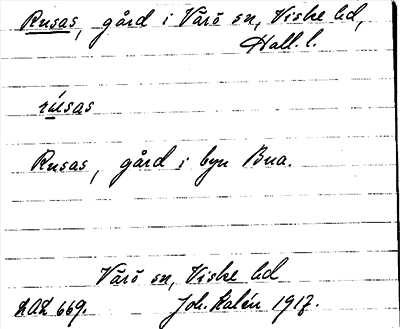 Rusas, gård i Värö sn, Viske hd,
Hall. l.
rúsas
Rusas, gård i byn Bua.
Värö sn, Viske hd
DAL 669. Joh. Kalén 1917.